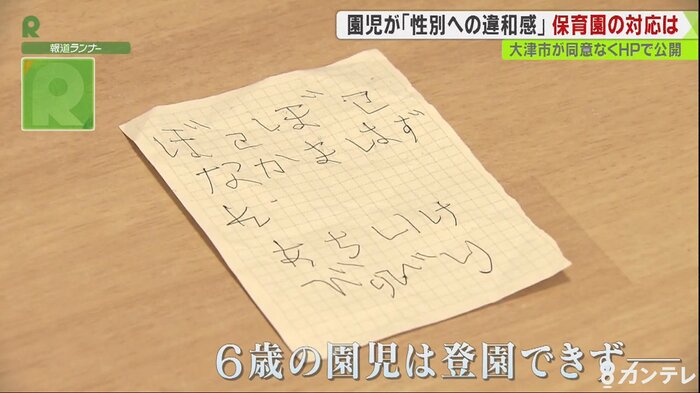 R
報道ランナー
R
園児が「性別への違和感」 保育園の対応は
大津市が同意なくHPで公開
ぼこぼこ
なかまはず
れ
あちいけ
６歳の園児は登園できず──
8カンテレ